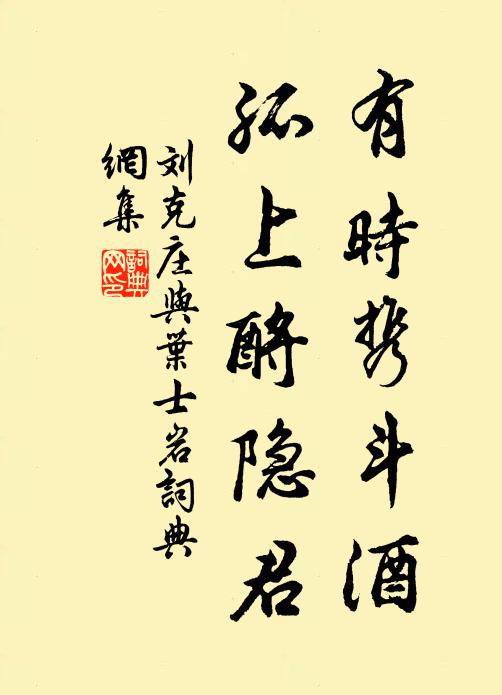 有時携斗酒
孤上酹隐君
刘克庄與葉士岩詞典
網集
詞典
网印